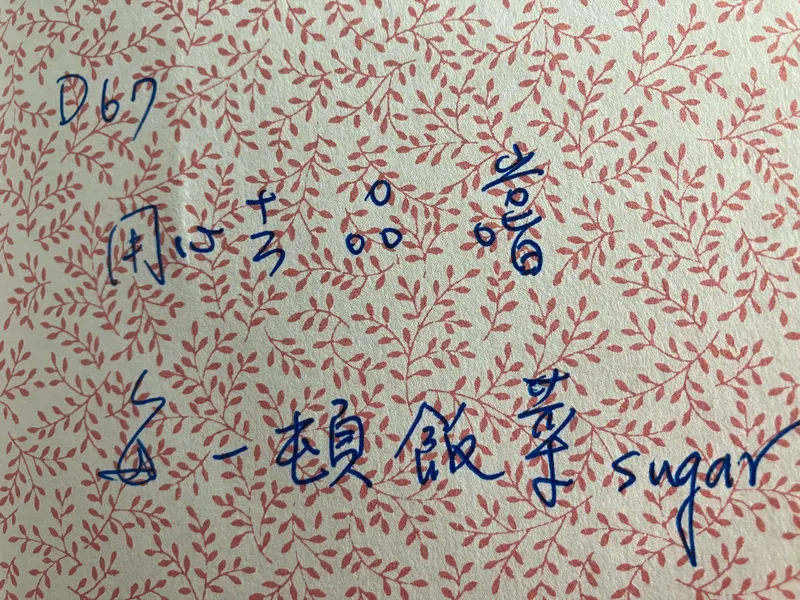 D67
用心去品嚐
每一頓飯菜 sugar